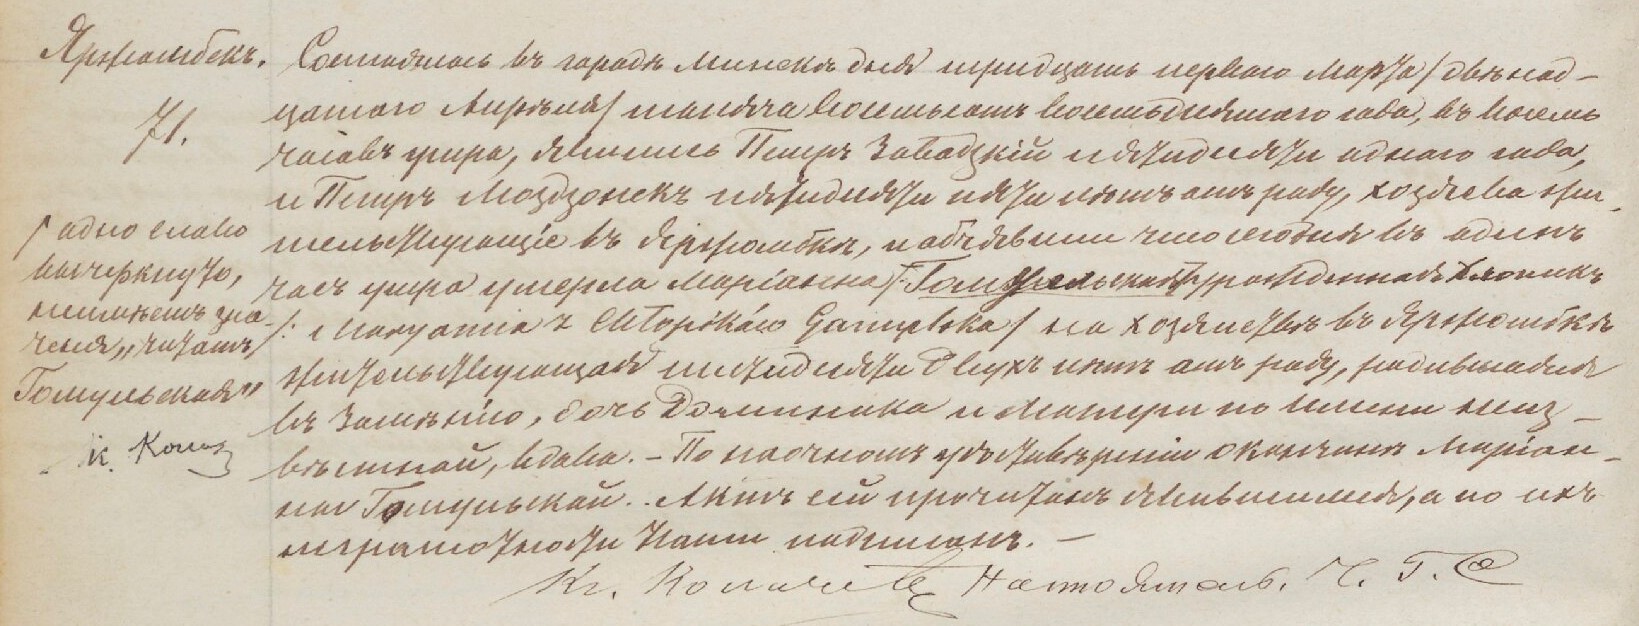 Яржомбекъ.
71.
/ одно слово
вычеркнуто,
читать
Гомульская"
К. Кол
Состоялось въ городѣ Минскѣ дня тридцать перваго Марта / двѣнад-
цатаго Апрѣля / тысяча восемьсотъ восемьдесятаго года, въ восемь
часовъ утра, явились Петръ Завадзкій пятидесяти одного года,
и Петръ Моздзонекъ пятидесяти пяти лѣтъ отъ роду, хозяева жи-
тельствующіе въ Яржомбкѣ, и объявили что сего дня въ одинъ
часъ утра умерла Маріанна /: :/ урожденная Хлопикъ
на хозяйствѣ въ Яржомбкѣ
жительствующая пятидесяти двухъ лѣтъ отъ роду, родившаяся
въ дочь Доминика и матери по имени неиз-
вѣстной, вдова. – По наочномъ удостовѣреніи о кончинѣ Маріан-
ны Гомульской. Актъ сей прочитанъ явившимся, а по ихъ
неграмотности Нами подписанъ. –
Кс. Настоятель. Ч. Г. С